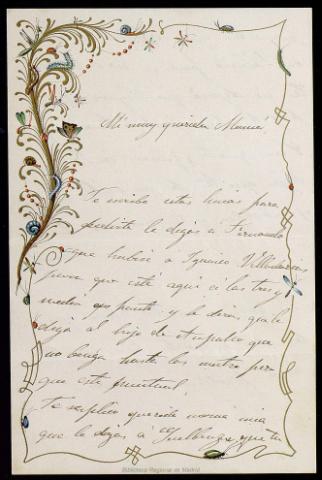 Mi muy querida Mamá
Te escribo estas lineas para
pedirte le digas a Fernando
que hable a Ignacio
para que esté aqui á las tres y
media en punto y le diras que le
diga al hijo de que
no venga hasta las cuatro pero
que esté puntual.
Te suplico querida mamá mia
que le digas á que tu
Biblioteca Regional de Madrid